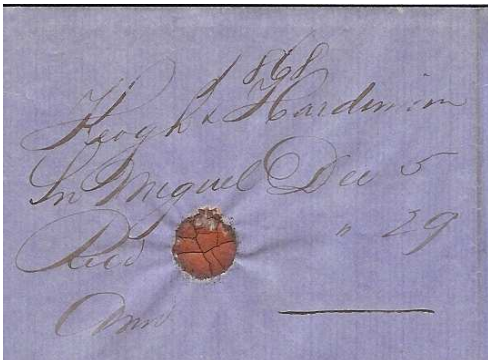 1868
Keogh & Hardinson
Sn Miguel Dec 5
Recd " 29
Ansd